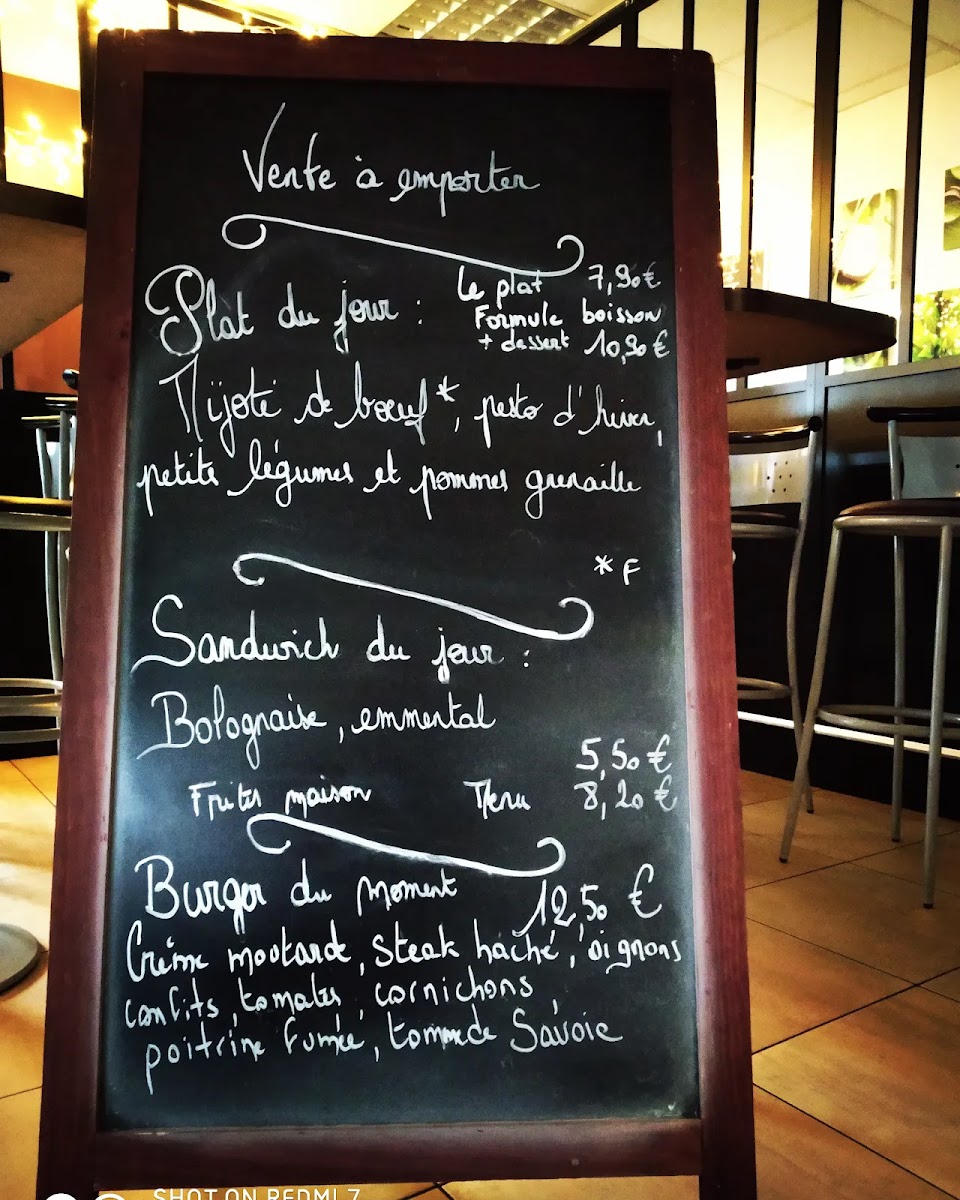 Vente à emporter
Plat du jour :
Le plat 7,90€
Formule boisson
+ dessert 10,90€
Mijoté de bœuf*, pesto d'hiver,
petits légumes et pommes grenaille
*F
Sandwich du jour :
Bolognaise, emmental
5,50€
Frites maison Menu 8,20€
Burger du moment 12,50€
Crème moutarde, steak haché, oignons
confits, tomates, cornichons,
poitrine fumée, tomme de Savoie
SHOT ON REDMI 7